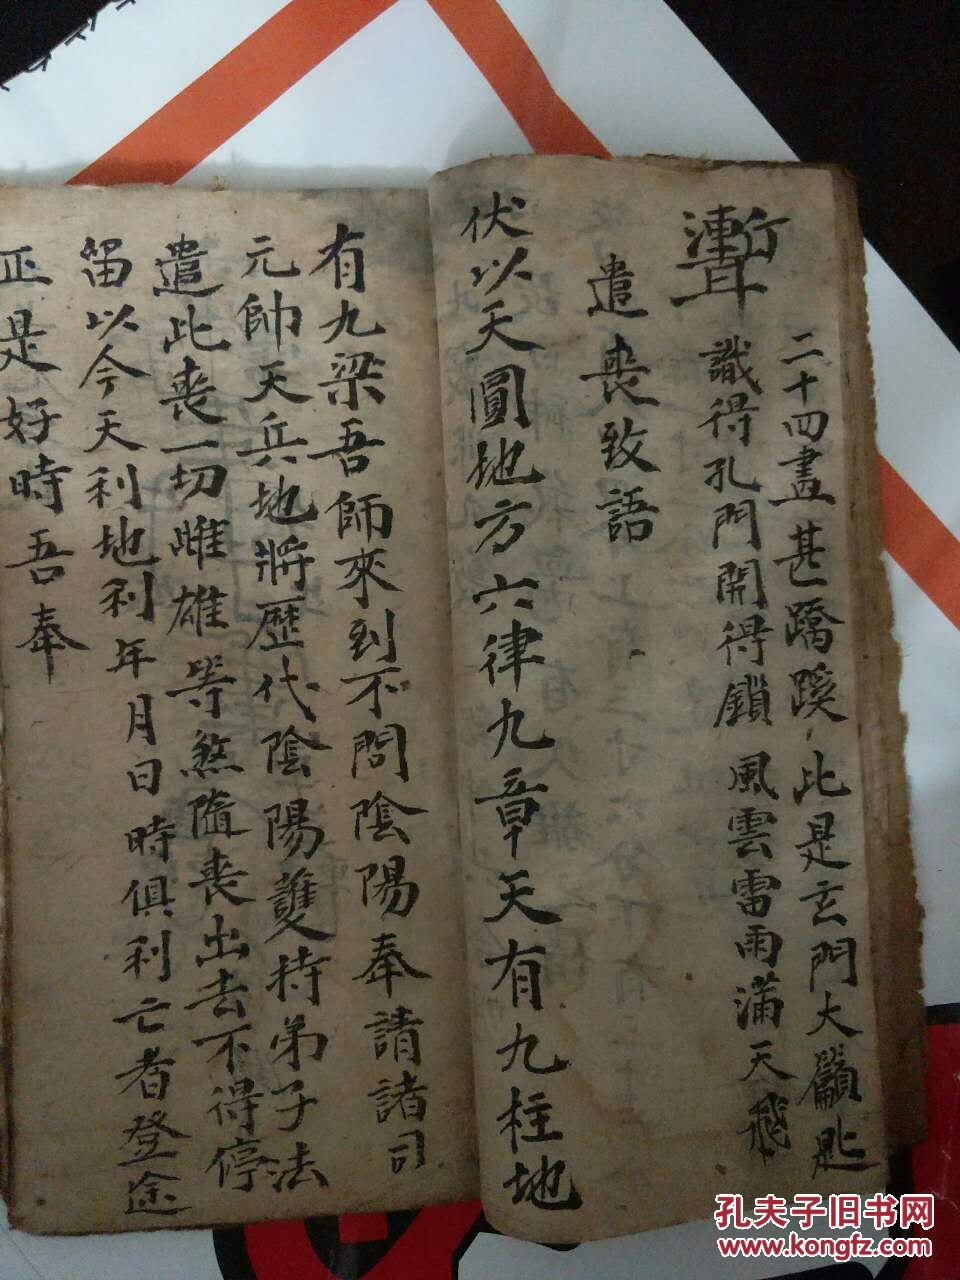 二十四畫甚蹺蹊此是玄門大籲匙
識得孔門開得鎖風雲雷雨滿天飛
遣喪致語
伏以天圓地方六律九章天有九柱地
有九梁吾師來到不問陰陽奉請諸司
元帥天兵地將歷代陰陽護持弟子法
遣此喪一切雌雄等煞隨喪出去不得停
留以今天利地利年月日時俱利亡者登途
正是好時吾奉
孔夫子旧书网
www.kongfz.com